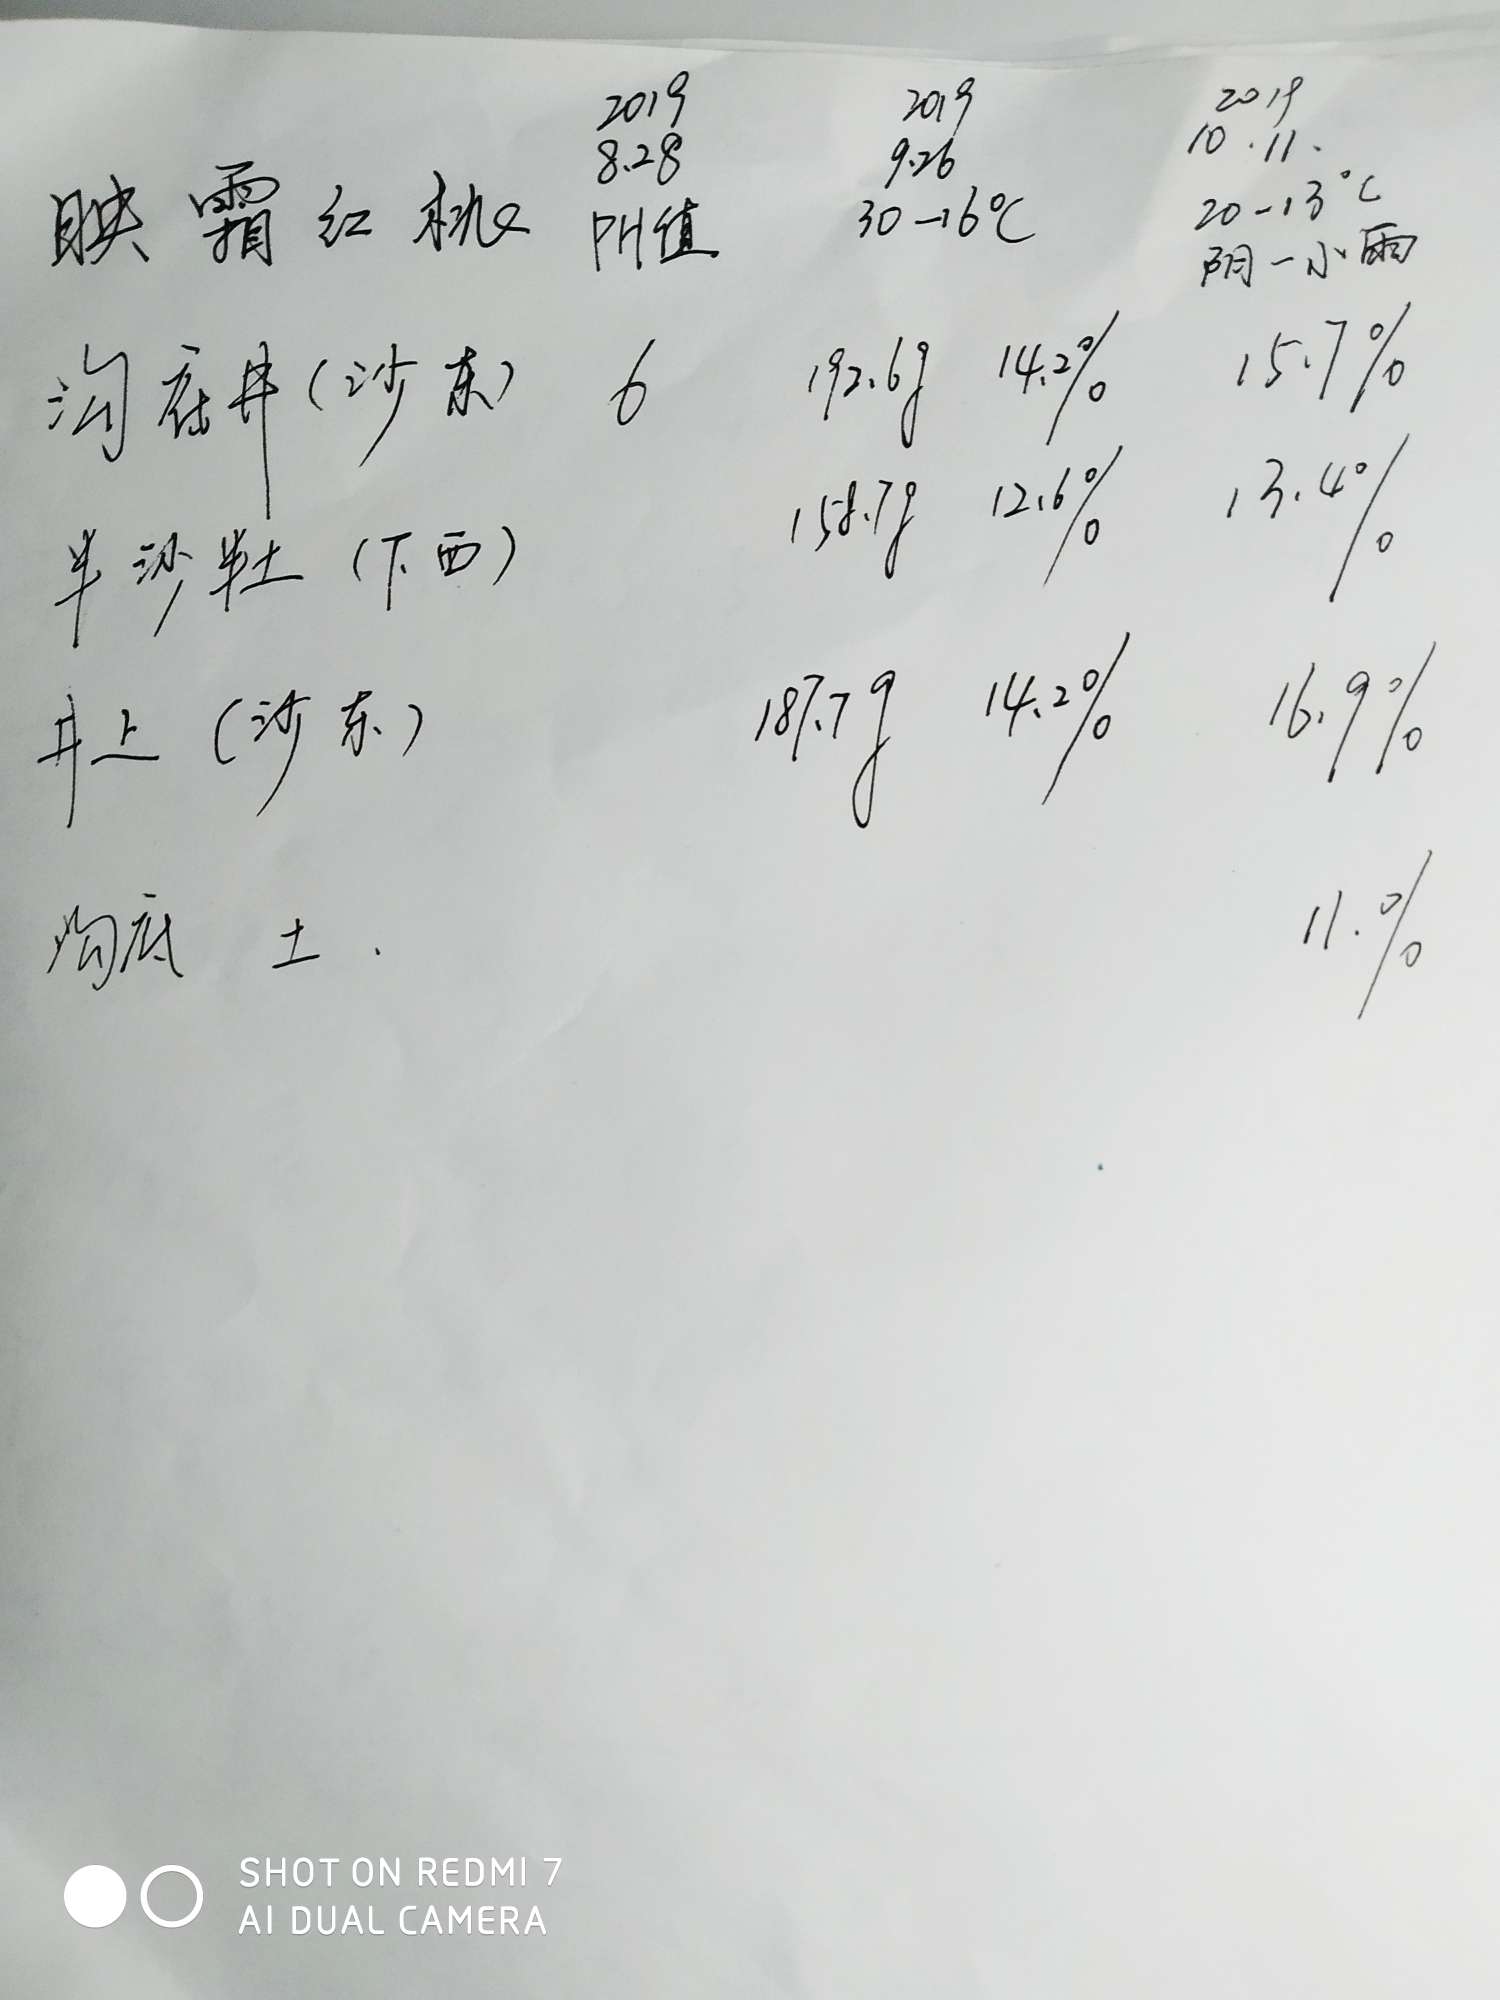 2019 2019 2019
8.28 9.26 10.11.
映霜红桃 PH值 30-16℃ 20-13℃
阴-小雨
沟底井(沙东) 6 192.6g 14.2% 15.7%
半沙半土(下西) 158.7g 12.6% 13.4%
井上(沙东) 187.7g 14.2% 16.9%
沟底 土. 11.%
SHOT ON REDMI 7
AI DUAL CAMERA